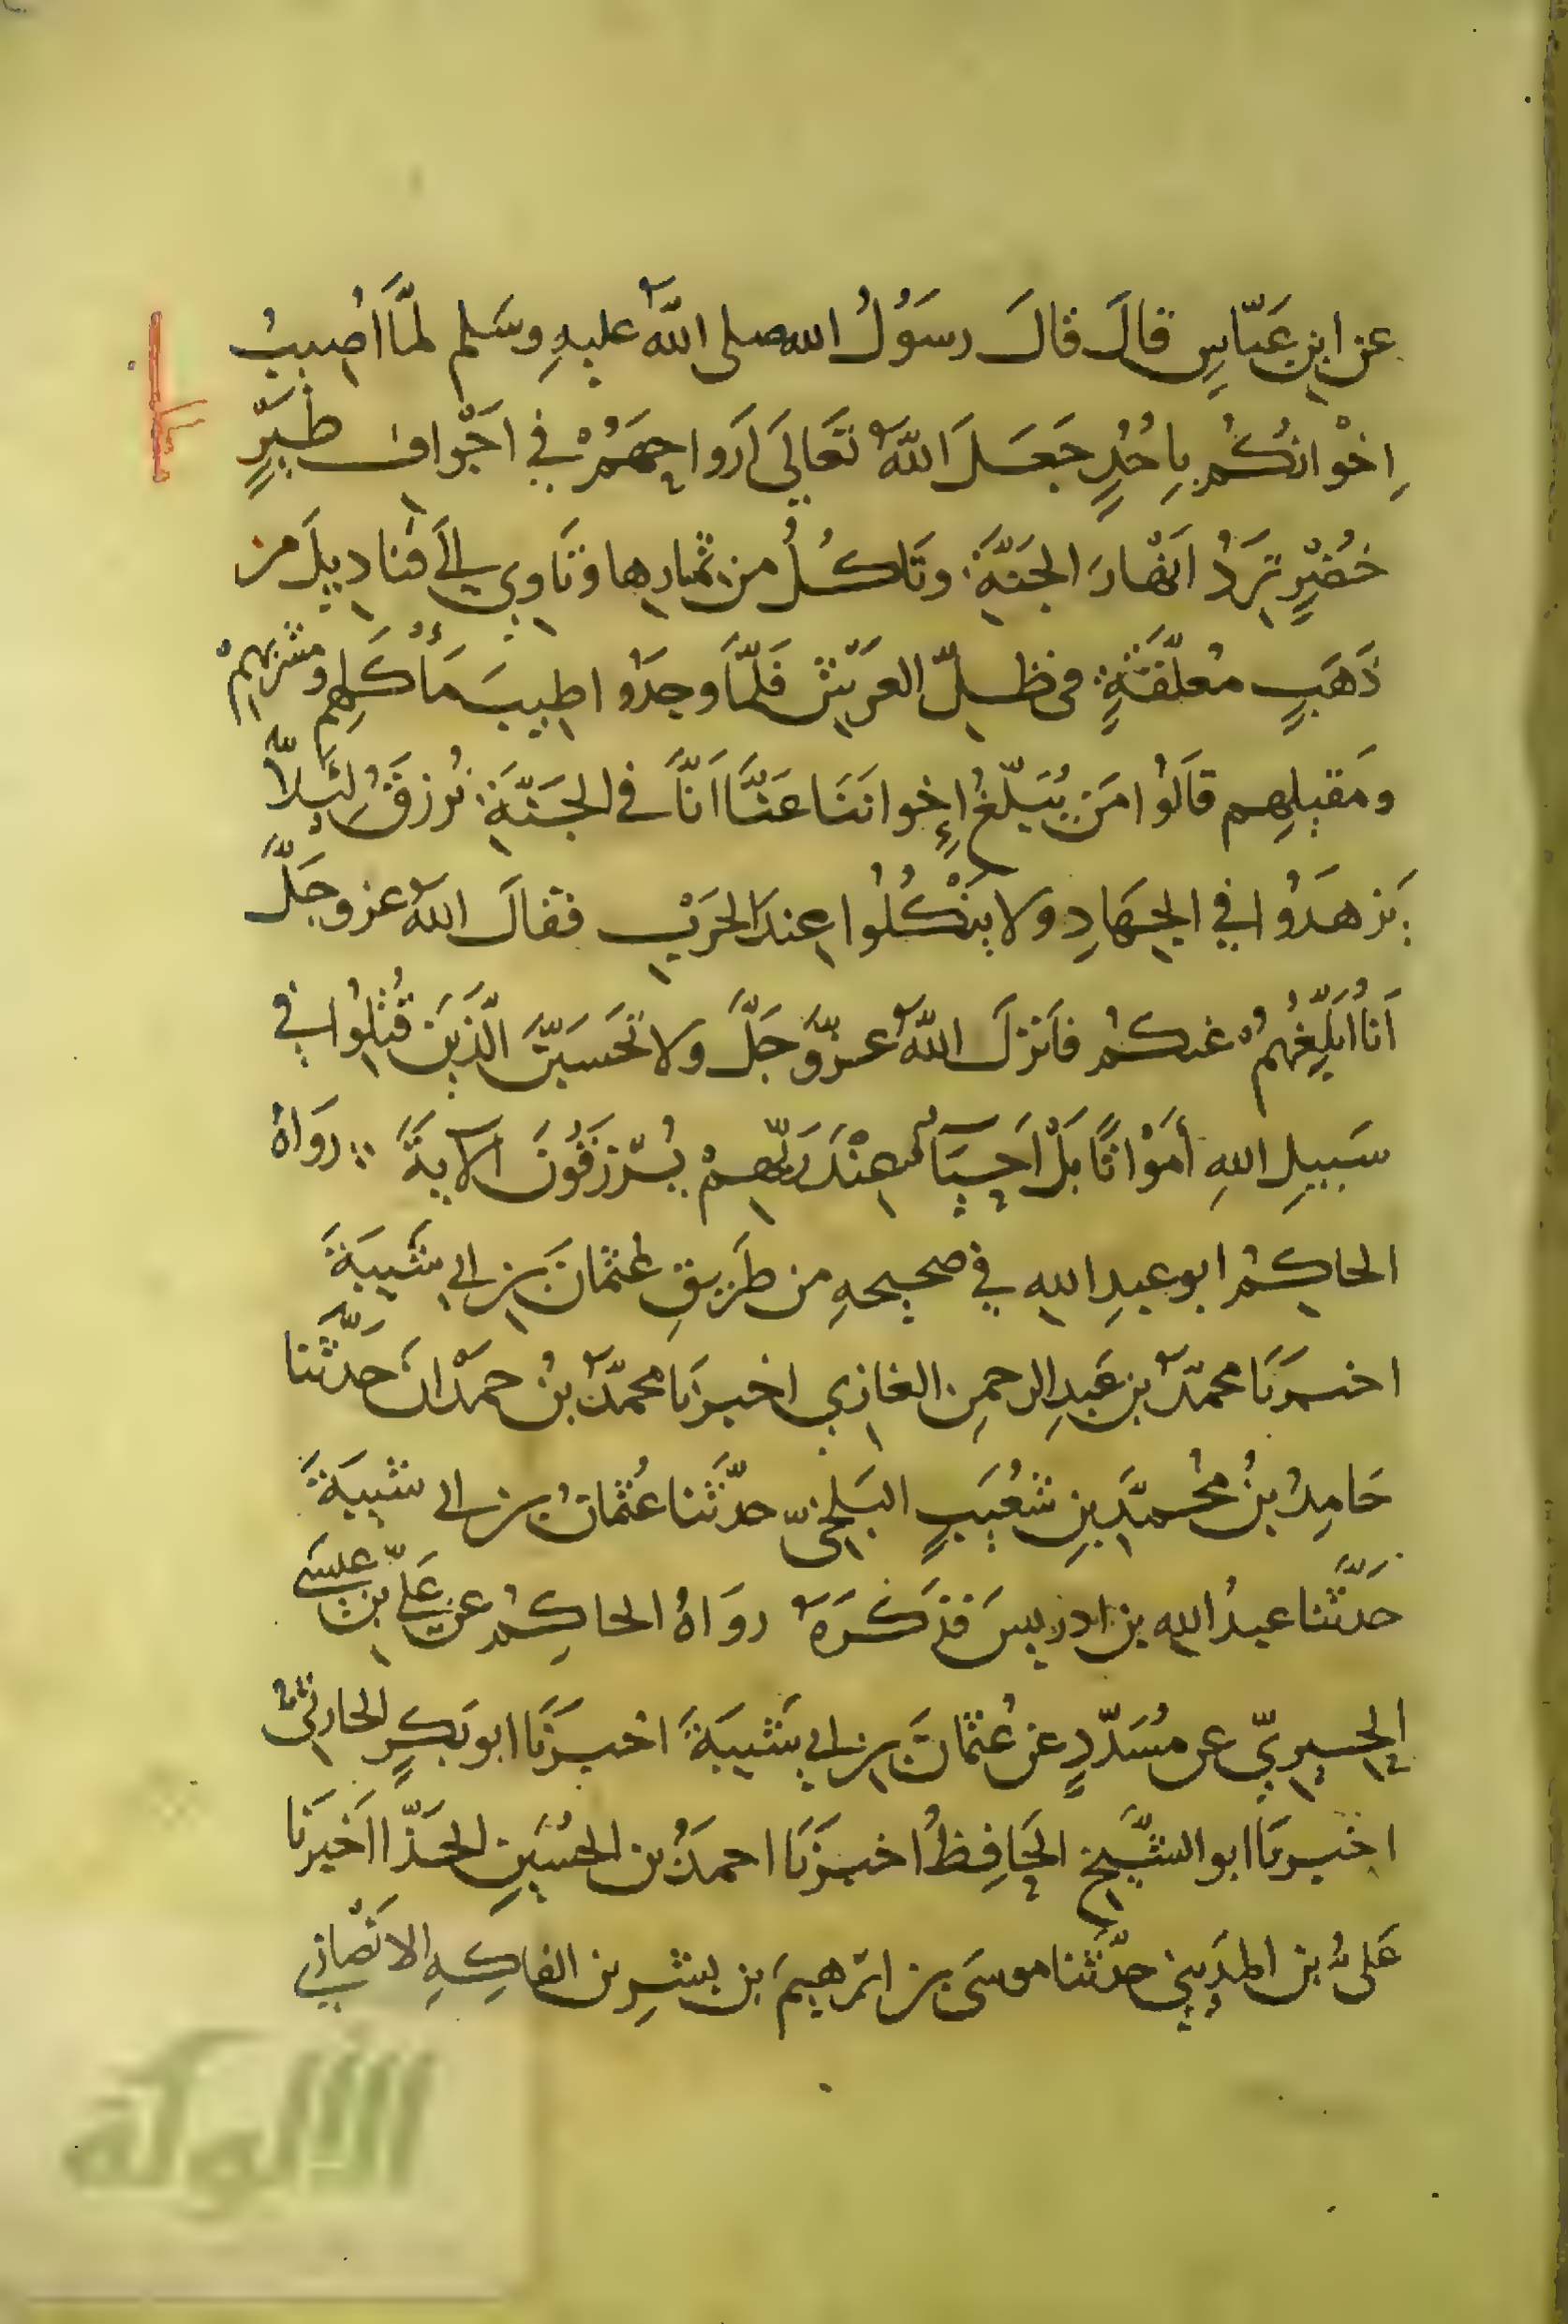 عن ابنِ عَبّاسٍ قالَ قالَ رسَوُلُ الله صلى اللهُ عليهِ وسَلم لمَّا اُصيبَ
اِخْوانُكُم بِاُحُدٍ جَعَلَ اللهُ تَعَالَى اَرواحَهُمْ في اَجْوافِ طَيْرٍ
خُضْرٍ تَرِدُ اَنْهارَ الجَنّةِ وتَاكُلُ من ثمارِها وتَاوِي اِلَى قناديلَ من
ذَهَبٍ معلّقَةٍ في ظلِّ العَرْشِ فَلمّا وجَدُوا طيبَ مَأْكَلِهِم ومشربهِمْ
ومَقيلِهِم قالَوُا مَن يُبَلّغُ اِخوانَنَا عَنَّا اَنَّا في الجَنّةِ نُرزَقُ لِئَلاَّ
يَزهَدُوا في الجِهَادِ ولا يَنْكُلُوا عِندَ الحَرْبِ فقالَ اللهُ عز وجَلَّ
اَنا اُبَلِّغُهُمْ عنكُم فاَنزلَ اللهُ عزَّوَجَلَّ ولا تَحْسَبَنَّ الَّذِيَن قُتِلُوا في
سَبيلِ اللهِ أمَوْاتًا بَلْ اَحيَآءٌ عِنْدَ رَبِّهِمْ يُرْزَقُونَ الآيةَ ∴ روَاهُ
الحاكِمُ ابو عبدِ اللهِ في صحيحِهِ من طَريقِ عُثمانَ بنِ ابي شَيبَةَ
اخبرَنَا محمّدُ بن عَبدِ الرحمنِ الغازِي اخبرَنا محمّدُ بنُ حمَدْانَ حَدَّثنا
حَامِدُ بنُ مُحمّدِ بنِ شعُيَبٍ البَلخِىّ حدّثَنا عُثمانُ بن ابى شَيبَةَ
حَدَّثَنا عبدُ اللهِ بن ادريسَ فذكَرَهُ روَاهُ الحاكِمُ عن عَليِّ بن عيسَى
الحِيرِيّ عن مُسَدّدٍ عن عُثمانَ بنِ ابي شَيبَةَ اخبرَنَا ابو بَكرٍ الحارثىُّ
اخبرنَا ابو الشّيَخِ الحَافِظُ اخبرَنَا احمدُ بن الحُسَينِ الحَذّا اَخبرنَا
عَلىُّ بن المدَيِنى حدّثَنا موسَى بن ابرهيمَ بن بشرِ بن الفاكِهِ الانْصَارِي
الألوكة